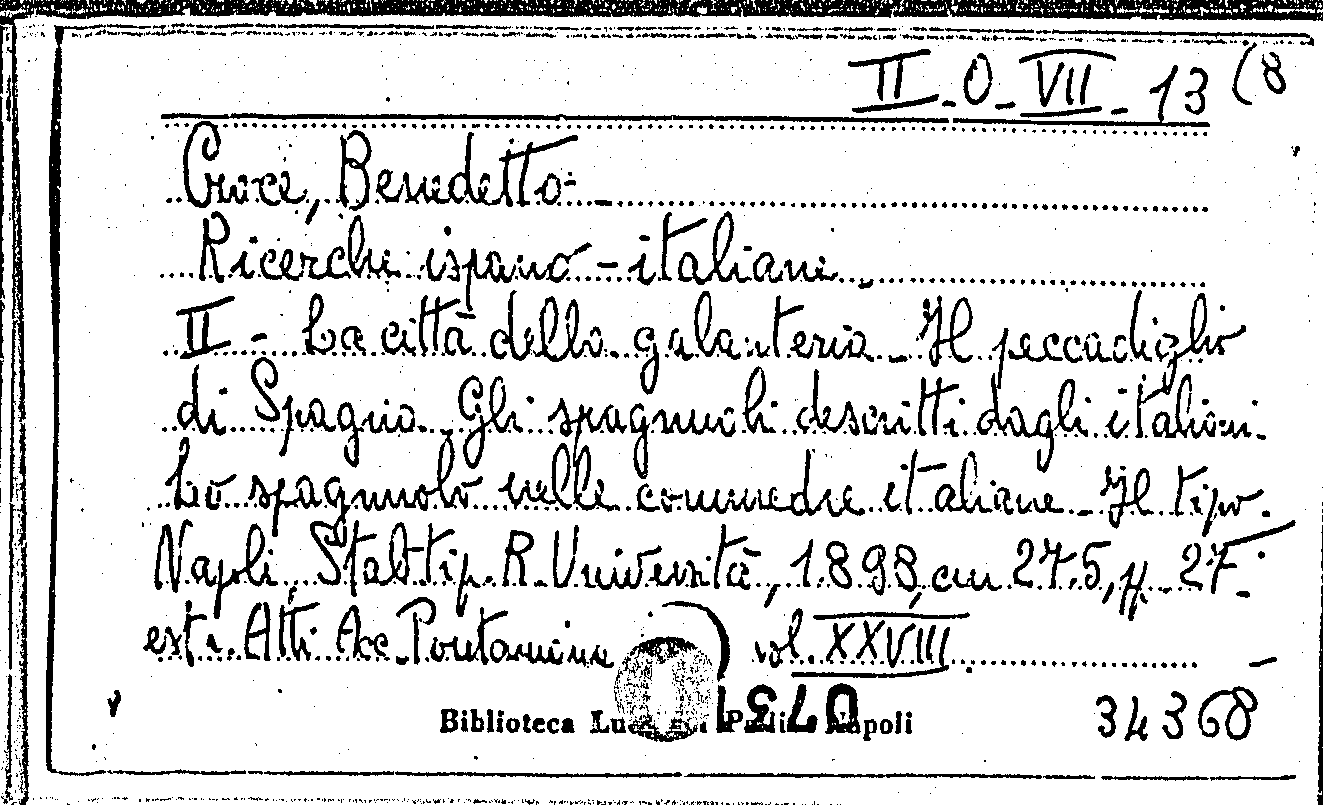 II-O-VII-13 (8
Croce, Benedetto.-
Ricerche ispano-italiane.-
II - La città della galanteria - Il peccadiglio
di Spagna - Gli spagnuoli descritti dagli italiani.
Lo spagnuolo nelle commedie italiane - Il tipo.
Napoli, Stab. tip. R. Università, 1898, cm 27.5, pp. 27.-
estr. Atti Acc. Pontaniana vol. XXVIII. -
34368
Biblioteca Napoli